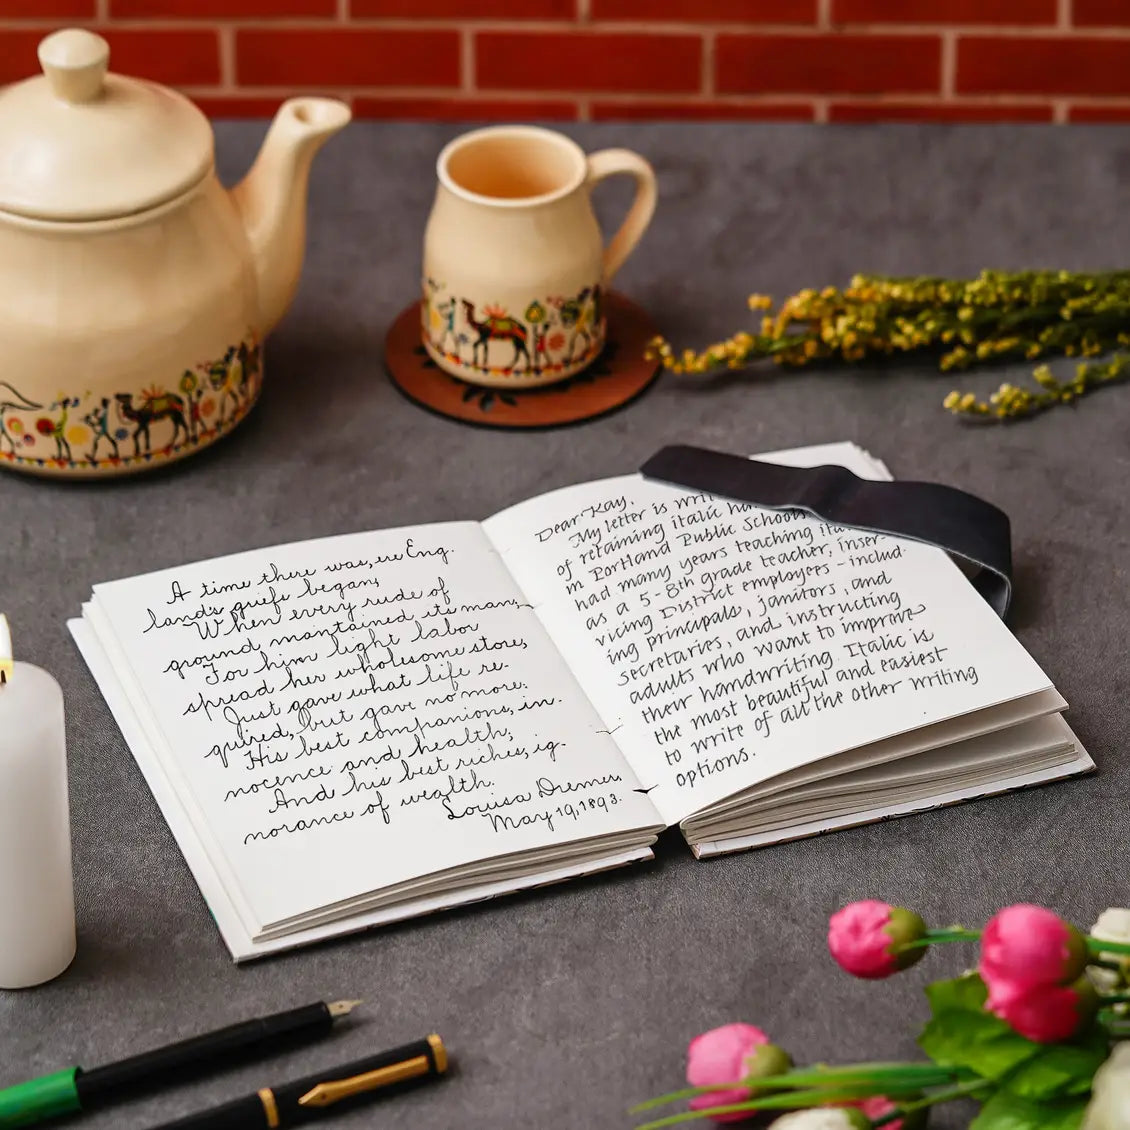 A time there was, ere Eng.
land's griefs began,
When every rude of
ground mantained its man;
For him light labor
spread her wholesome store,
Just gave what life re.
quired, but gave no more:
His best companions, in.
nocence and health,
And his best riches, ig.
norance of wealth.
Louisa
May 19, 1893.
Dear Kay,
My letter is
of retaining italic
in Portland Public Schools
had many years teaching
as a 5-8th grade teacher, inser-
vicing District employees - includ-
ing principals, janitors, and
secretaries, and instructing
adults who want to improve
their handwriting Italic is
the most beautiful and easiest
to write of all the other writing
options.